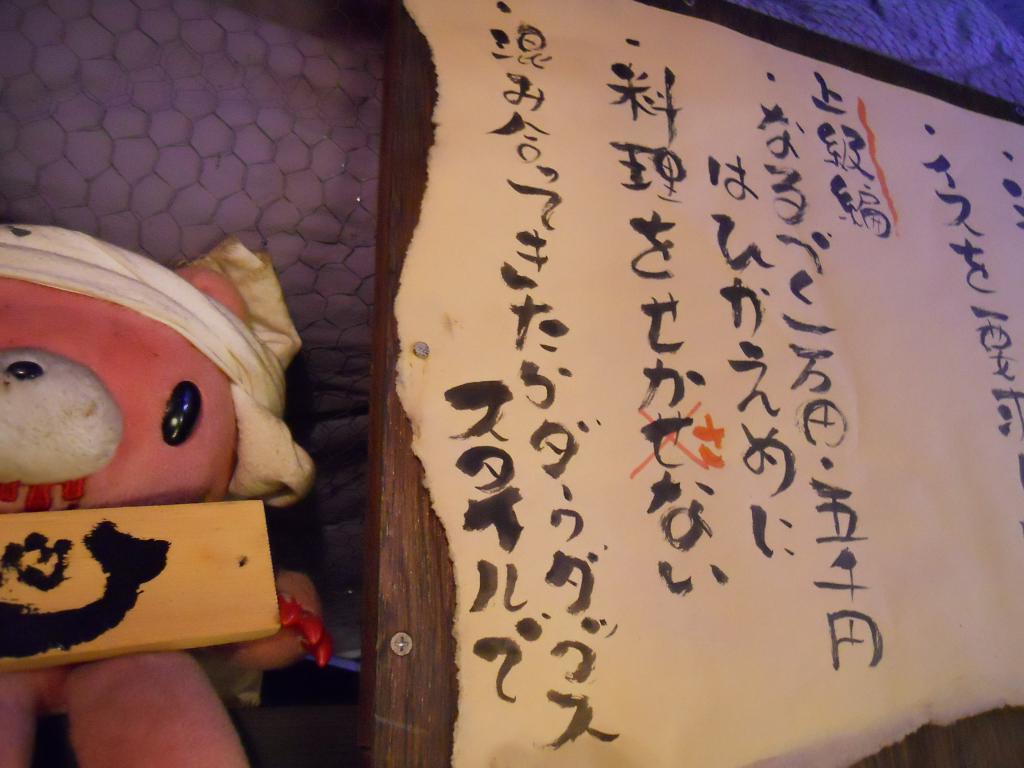 スを一
上級編
・なるべく一万円・五千円
はひかえめに
・料理をせかせない
さ
・混み合ってきたらダークダックス
スタイルで